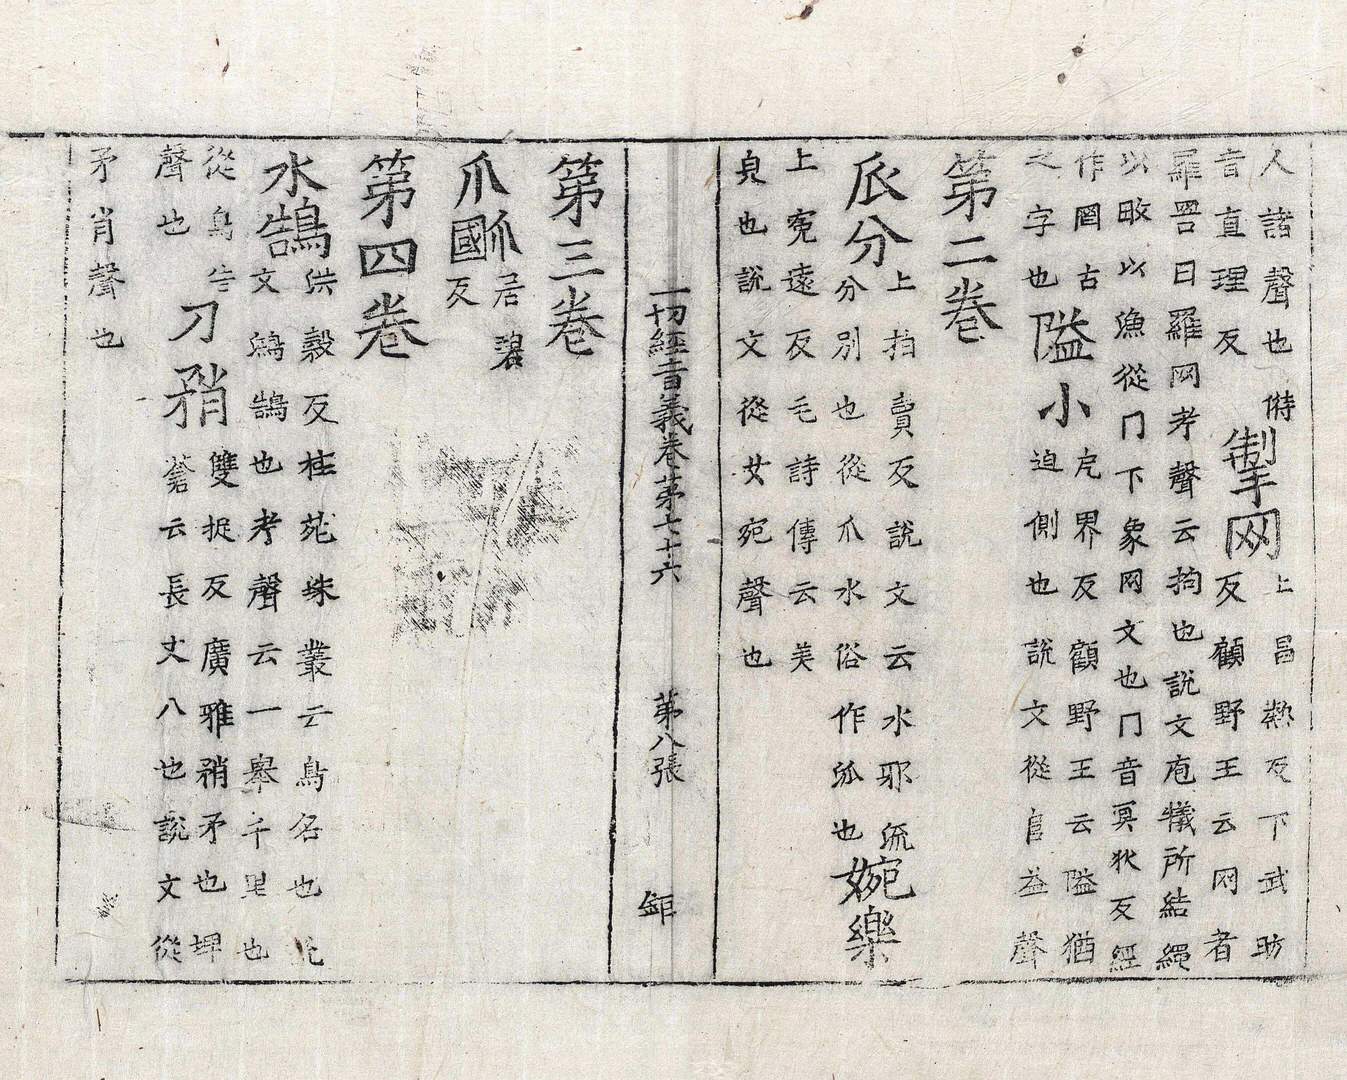 人諸聲也偫
音直理反
掣网
上昌熱反下武昉
反顧野王云网者
羅罟曰羅网考聲云拘也說文庖犧所結繩
以畋以漁從冂下象网文也冂音冥狄反經
作罔古
之字也
隘小
戹界反顧野王云隘猶
迫側也說文從𨸏益聲
第二卷
𠂢分
上拍賣反說文云水邪流
分別也從爪水俗作派也
婉樂
上宛遠反毛詩傳云美
皃也說文從女宛聲也
一切經音義卷苐七十六 苐八張 鉅
第三卷
爪爴
居碧
反
第四卷
水鵠
洪穀反桂苑珠叢云鳥名也說
文鴻鵠也考聲云一舉千里也
從鳥告
聲也
刀矟
雙捉反廣雅矟矛也埤
蒼云長丈八也說文從
矛肖聲也